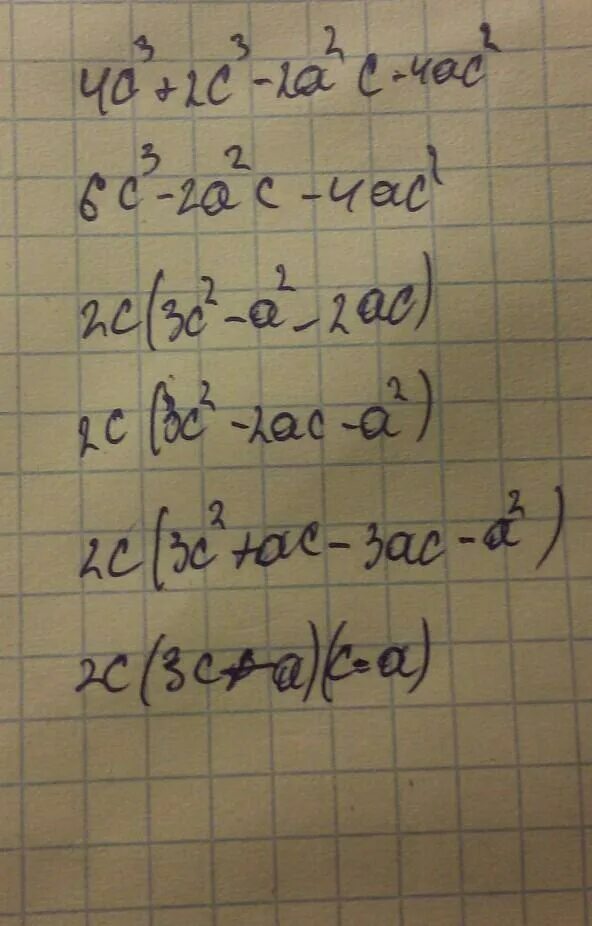 4c³+2c³-2a²c-4ac²
6c³-2a²c-4ac²
2c(3c²-a²-2ac)
2c(3c²-2ac-a²)
2c(3c²+ac-3ac-a²)
2c(3c+a)(c-a)